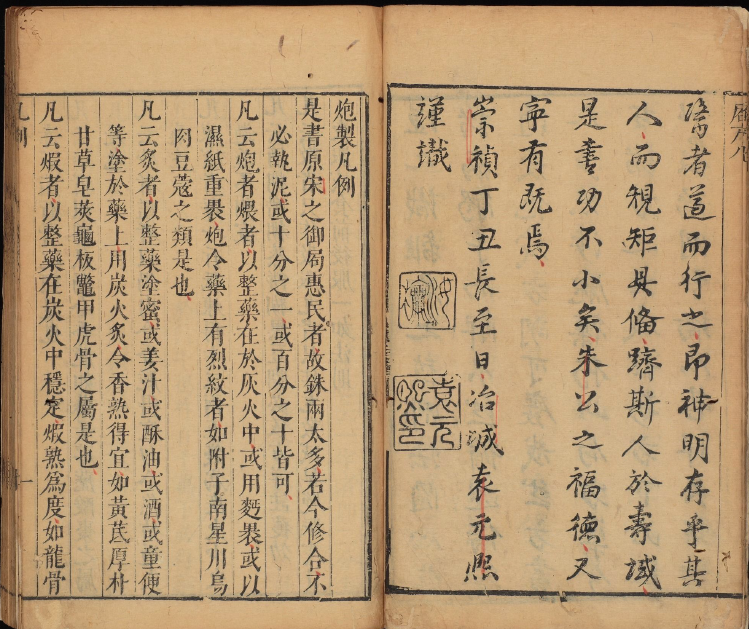 醫者道而行之即神明存乎其
人而規矩具備躋斯人於壽域
是書功不小矣朱公之福德又
寧有既焉
崇禎丁丑長至日冶城袁元熙
謹識
袁元
熙印
炮製凡例
是書原宋之御局惠民者故銖兩太多若今修合不
必執泥或十分之一或百分之十皆可
凡云炮者煨者以整藥在於灰火中或用麪褁或以
濕紙重褁炮令藥上有烈紋者如附子南星川烏
肉豆蔻之類是也
凡云炙者以整藥塗蜜或姜汁或酥油或酒或童便
等塗於藥上用炭火炙令香熟得宜如黃芪厚朴
甘草皂莢龜板鱉甲虎骨之屬是也
凡云煆者以整藥在炭火中穩定煆熟爲度如龍骨
凡例
一